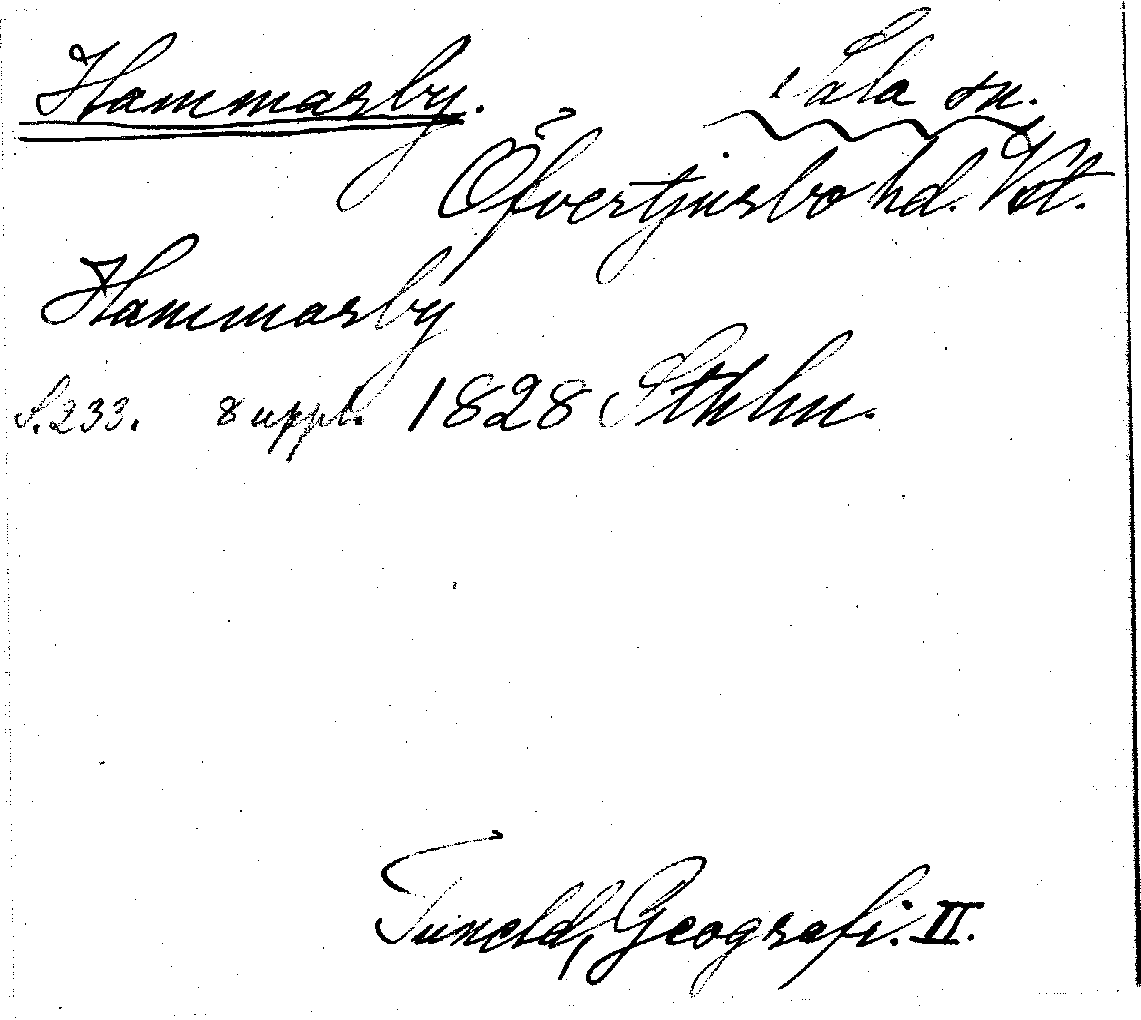 Hammarby. Sala sn.
Öfvertjurbo hd. Vstm.
Hammarby
S. 233. 8 uppl. 1828 Sthlm.
Tuneld, Geografi. II.